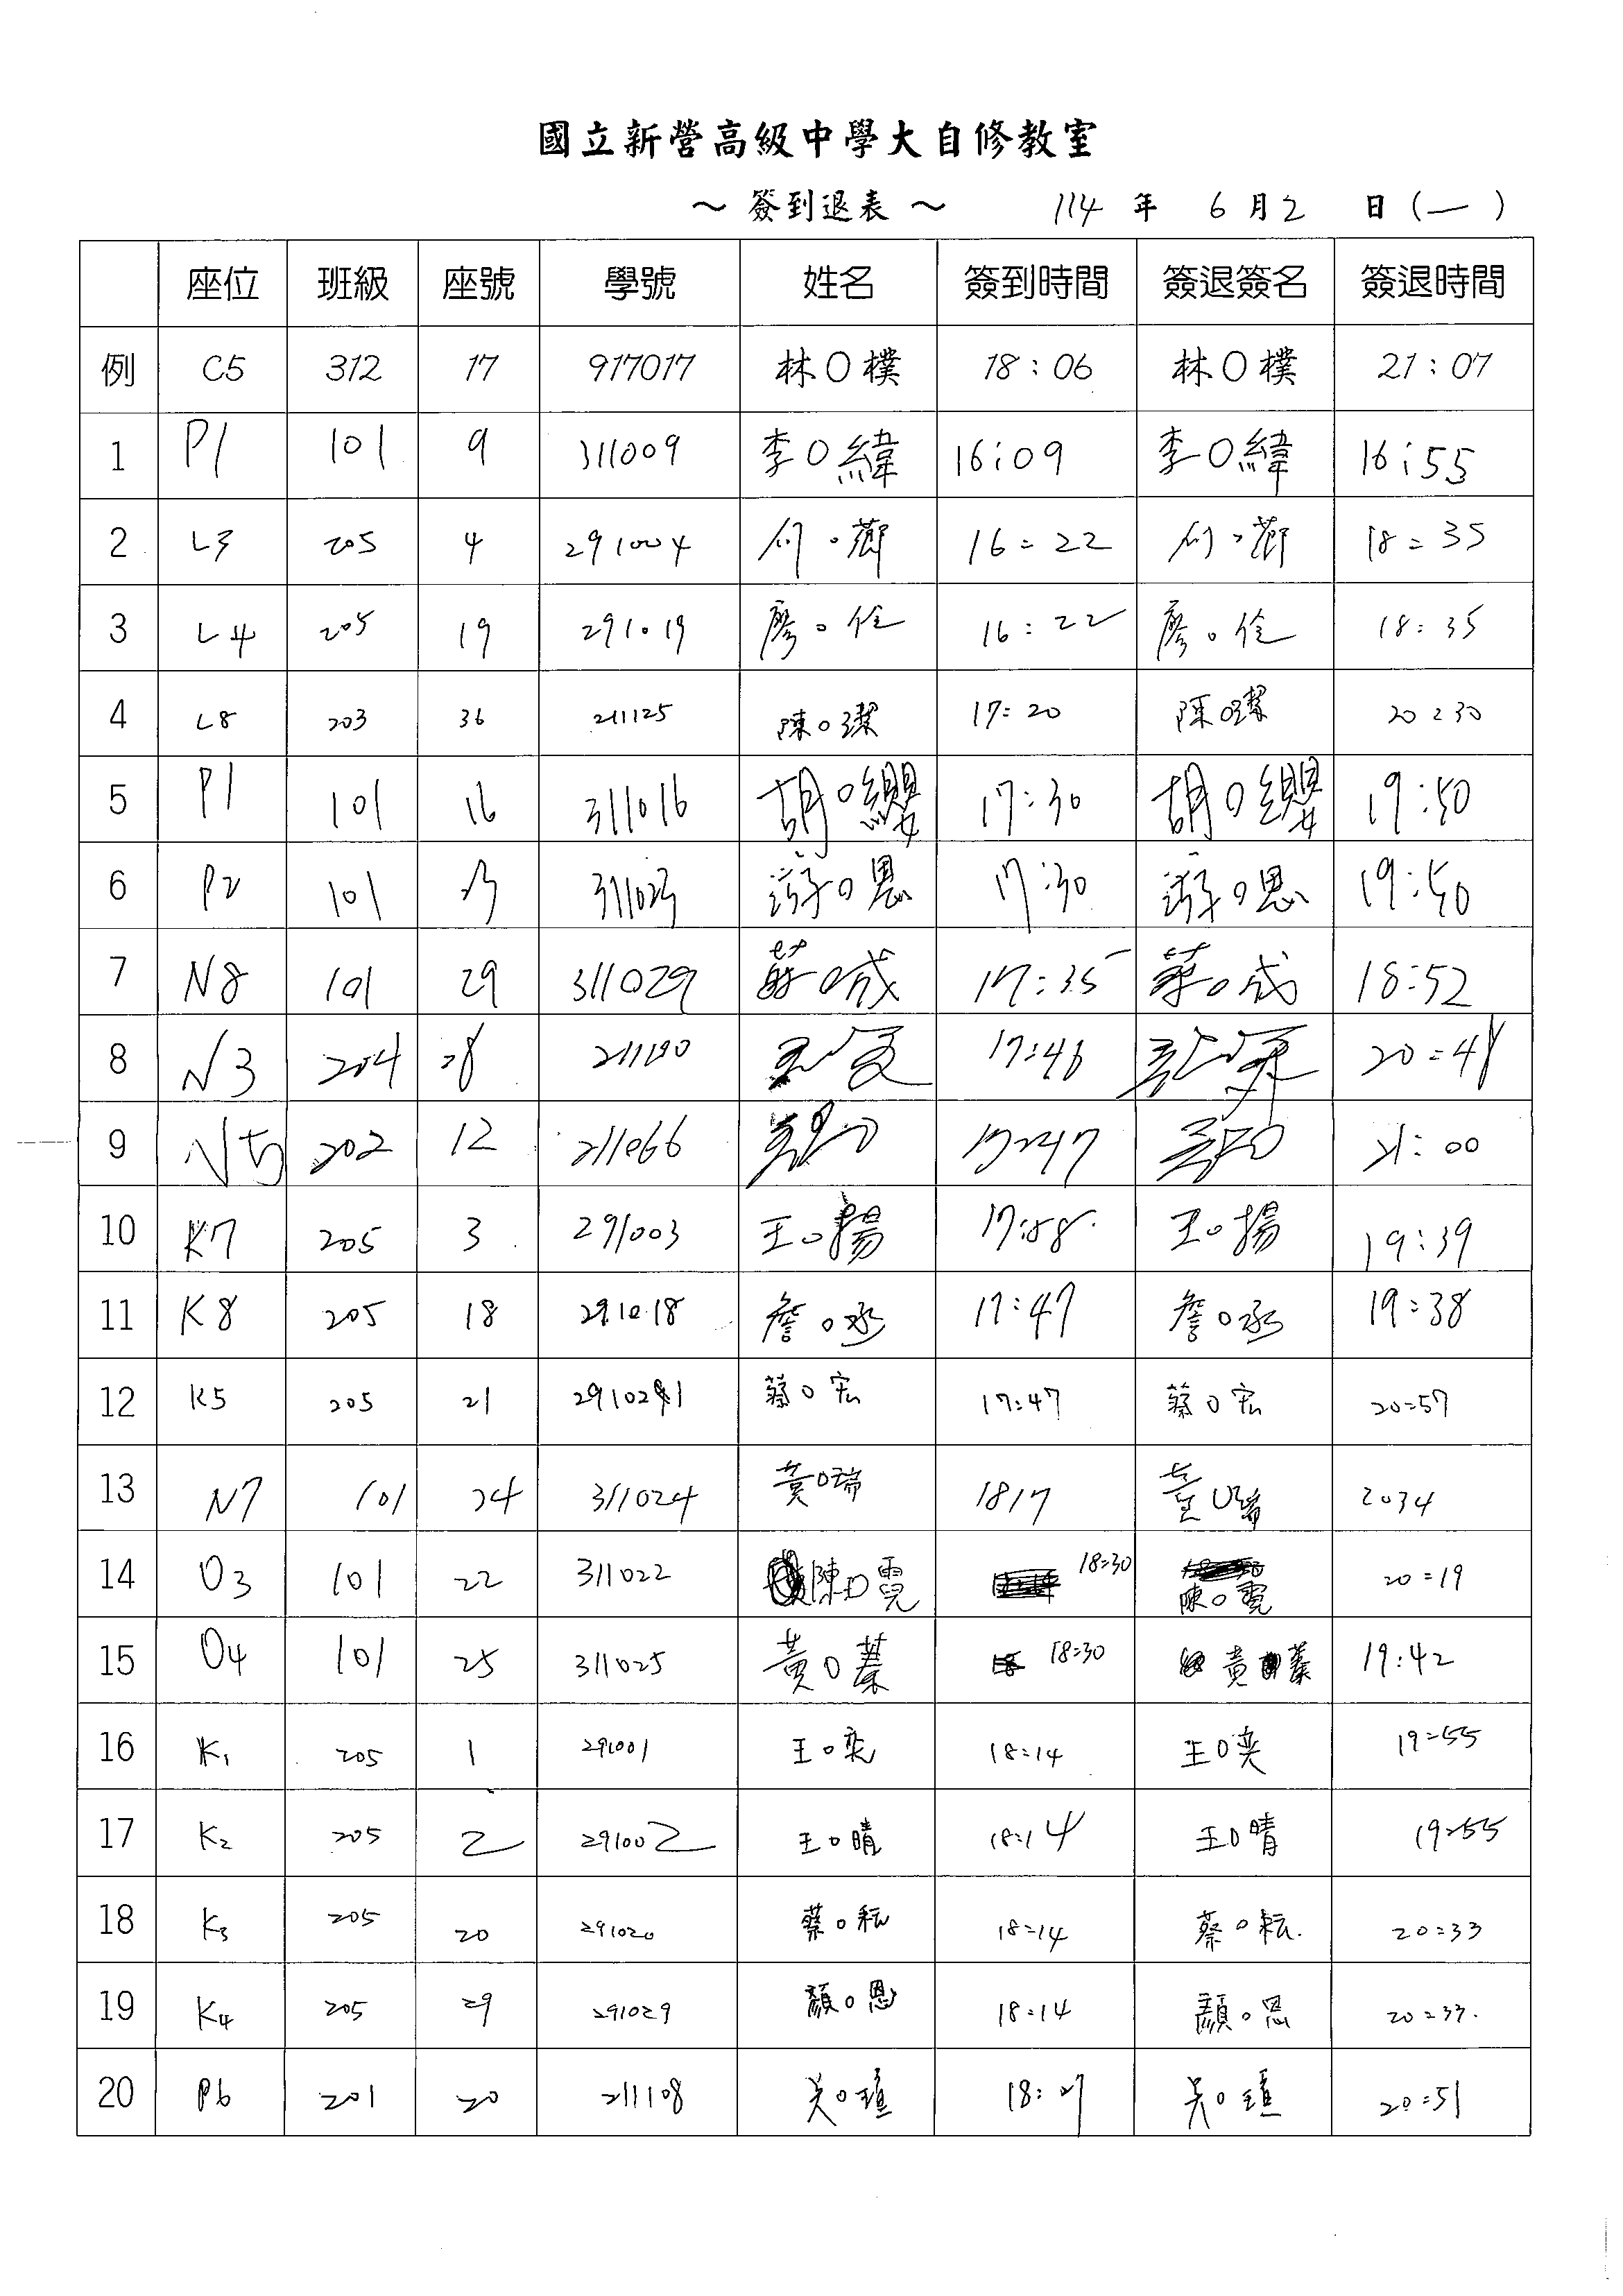 國立新營高級中學大自修教室
～ 簽到退表 ～ 114 年 6 月 2 日 (一)
座位 班級 座號 學號 姓名 簽到時間 簽退簽名 簽退時間
例 C5 312 17 917017 林O樸 18:06 林O樸 21:07
1 P1 101 9 311009 李O緯 16:09 李O緯 16:55
2 L3 205 4 291004 16:22 18:35
3 L4 205 19 291019 廖O佺 16:22 廖O佺 18:35
4 L8 203 36 211125 陳O潔 17:20 陳O潔 20:30
5 P1 101 16 311016 胡O纓 17:30 胡O纓 19:50
6 P2 101 23 311023 游O恩 17:30 游O恩 19:50
7 N8 101 29 311029 17:35 18:52
8 N3 204 28 17:46
9 N5 202 12 211066 17:47 21:00
10 K7 205 3 291003 王O揚 王O揚 19:39
11 K8 205 18 291018 詹O丞 17:47 詹O丞 19:38
12 K5 205 21 蔡O宏 17:47 蔡O宏 20:57
13 N7 101 24 311024 黃O瑞 1817 黃O瑞 2034
14 O3 101 22 311022 陳O霓 18:30 陳O霓 20:19
15 O4 101 25 311025 黃O蓁 18:30 黃 蓁 19:42
16 K1 205 1 291001 王O奕 18:14 王O奕 19:55
17 K2 205 2 291002 王O晴 18:14 王O晴 19:55
18 K3 205 20 291020 蔡O耘 18:14 蔡O耘 20:33
19 K4 205 29 291029 顏O恩 18:14 顏O恩 20:33
20 P6 201 20 211108 吳O瑄 吳O瑄 20:51